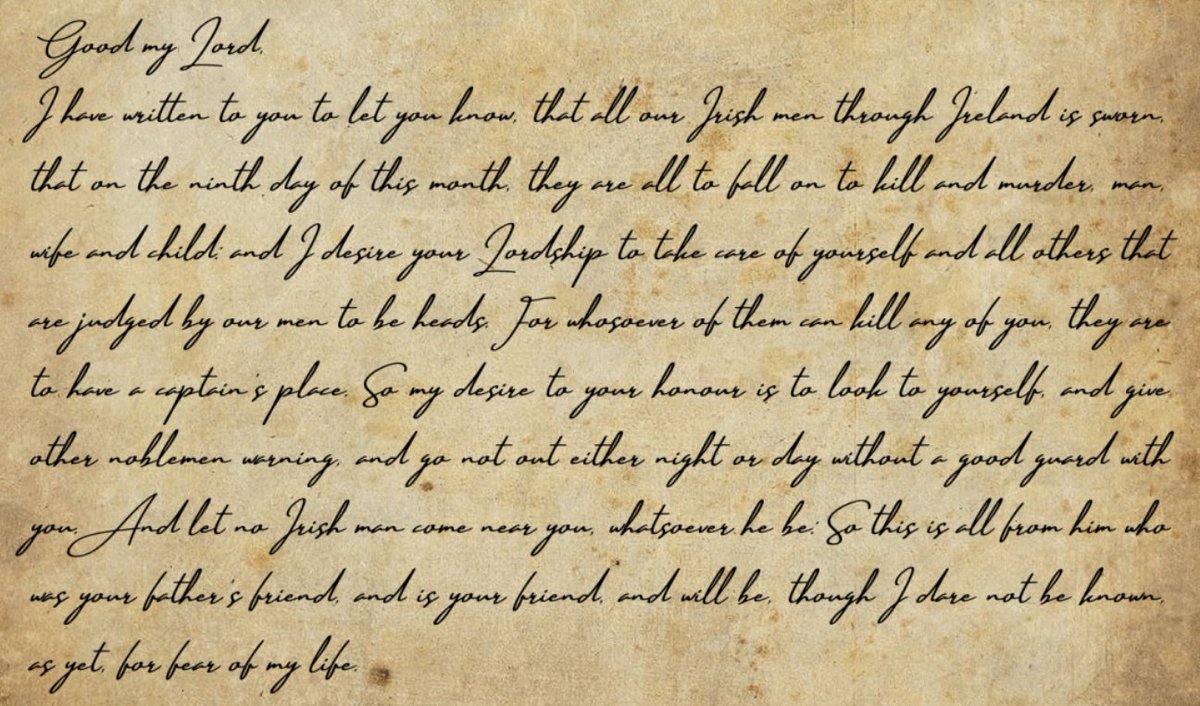 Good my Lord,
I have written to you to let you know, that all our Irish men through Ireland is sworn,
that on the ninth day of this month, they are all to fall on to kill and murder, man,
wife and child; and I desire your Lordship to take care of yourself and all others that
are judged by our men to be heads. For whosoever of them can kill any of you, they are
to have a captain's place. So my desire to your honour is to look to yourself, and give
other noblemen warning, and go not out either night or day without a good guard with
you. And let no Irish man come near you, whatsoever he be: So this is all from him who
was your father's friend, and is your friend, and will be, though I dare not be known,
as yet, for fear of my life.